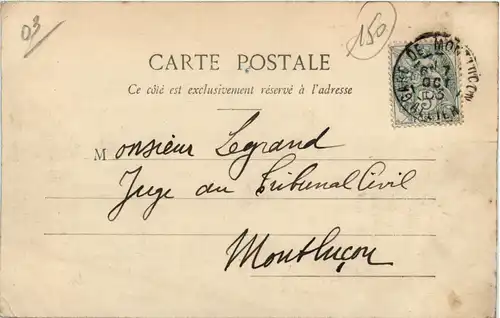 03
150
CARTE POSTALE
Ce côté est exclusivement réservé à l'adresse
GARE DE MONTLUÇON
OCT
Monsieur Legrand
Juge au Tribunal Civil
Montluçon